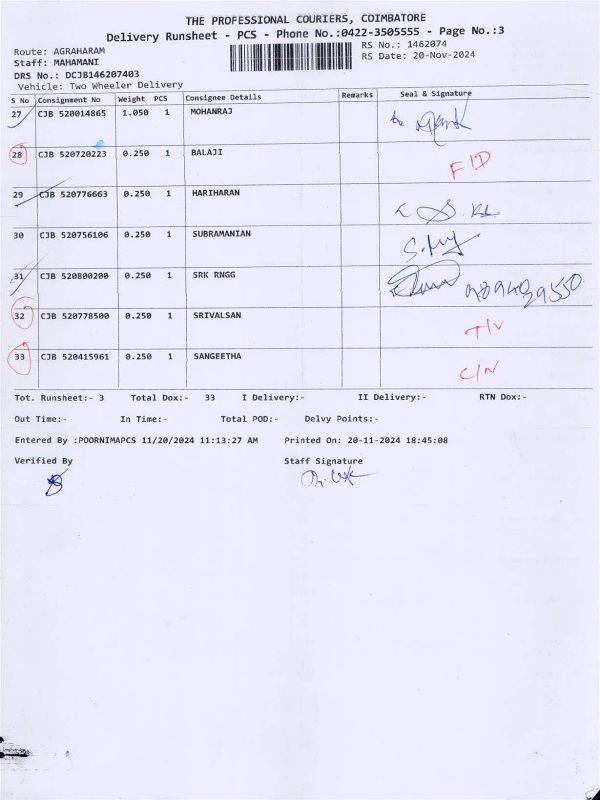 THE PROFESSIONAL COURIERS, COIMBATORE
Delivery Runsheet - PCS - Phone No.:0422-3505555 - Page No.:3
Route: AGRAHARAM
RS No.: 1462074
Staff: MAHAMANI
RS Date: 20-Nov-2024
DRS No.: DCJB146207403
Vehicle: Two Wheeler Delivery
S No Consignment No Weight PCS Consignee Details Remarks Seal & Signature
27 CJB 520014865 1.050 1 MOHANRAJ
28 CJB 520720223 0.250 1 BALAJI
F/D
29 CJB 520776663 0.250 1 HARIHARAN
30 CJB 520756106 0.250 1 SUBRAMANIAN
31 CJB 520800200 0.250 1 SRK RNGG
32 CJB 520778500 0.250 1 SRIVALSAN
33 CJB 520415961 0.250 1 SANGEETHA
C/N
Tot. Runsheet:- 3 Total Dox:- 33 I Delivery:- II Delivery:- RTN Dox:-
Out Time:- In Time:- Total POD:- Delvy Points:-
Entered By :POORNIMAPCS 11/20/2024 11:13:27 AM Printed On: 20-11-2024 18:45:08
Verified By Staff Signature